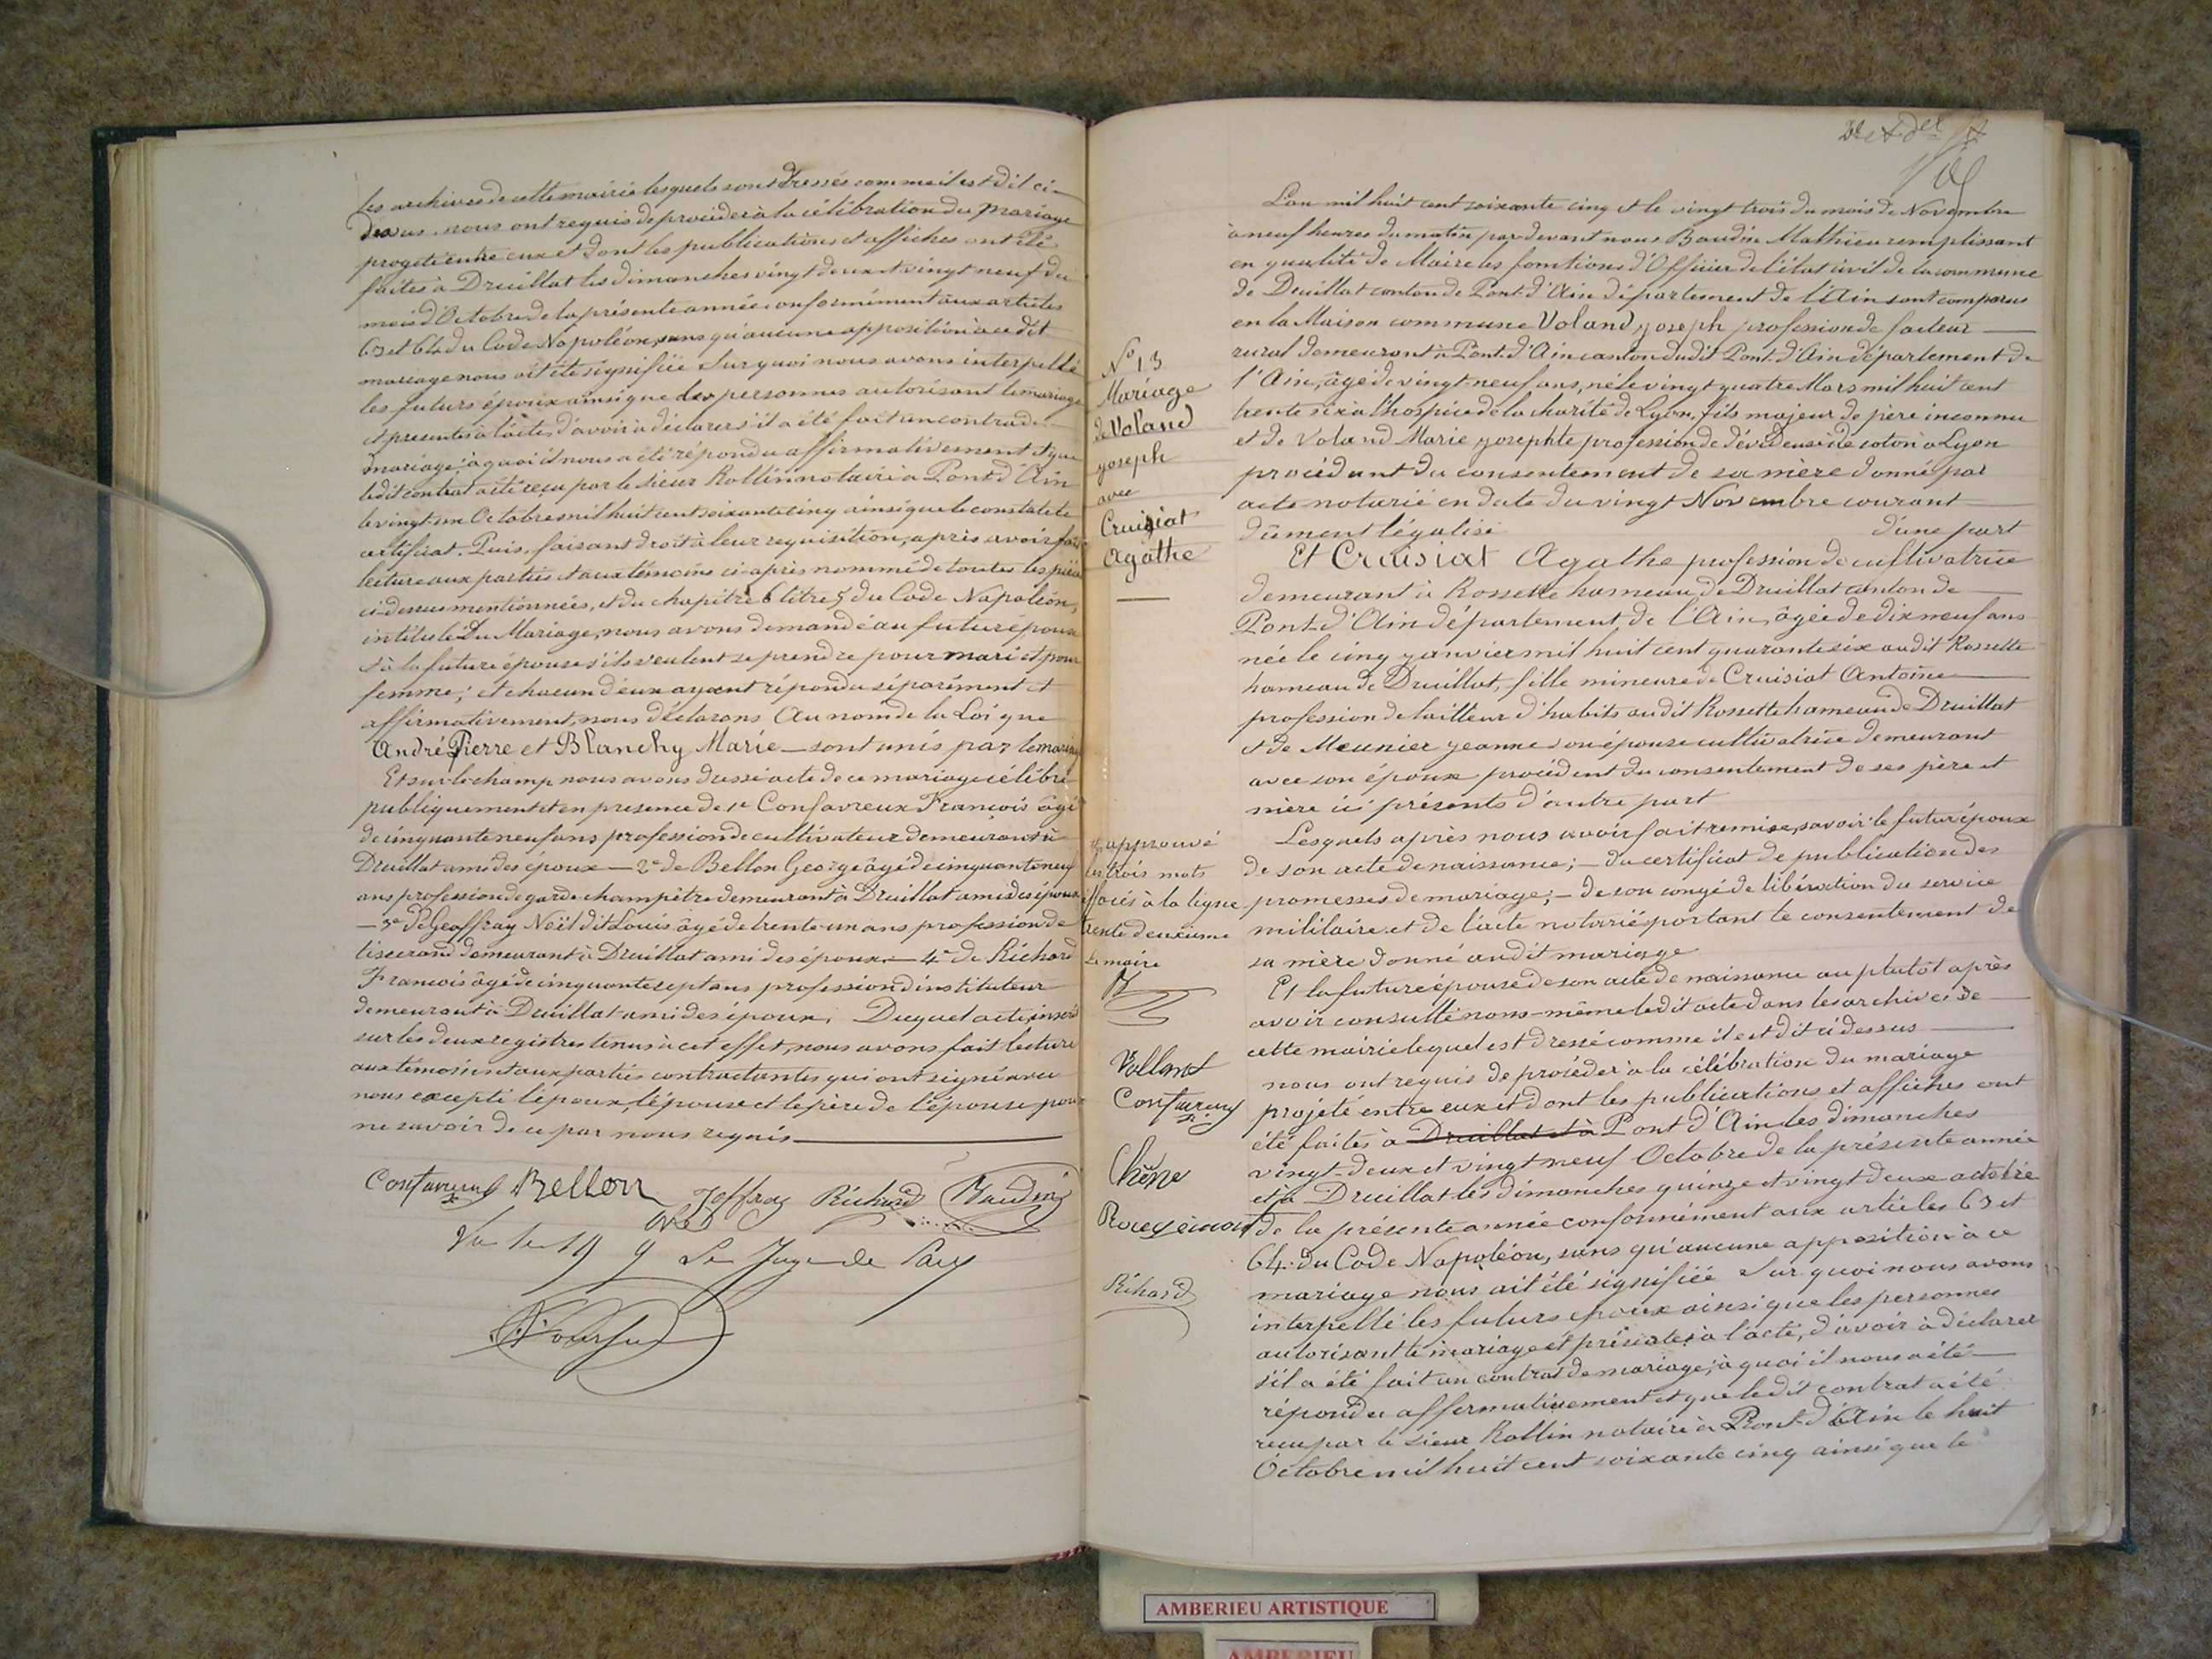 les archives de cette mairie lesquels sont dressés comme il est dit ci-
dessus. nous ont requis de procéder à la célébration du Mariage
projeté entre eux et dont les publications et affiches ont été
faites à Druillat les dimanches vingt deux et vingt neuf du
mois d'Octobre de la présente année conformément aux articles
63 et 64 du Code Napoléon, sans qu'aucune apposition à ce dit
mariage nous ait été signifiée Sur quoi nous avons interpellé
les futurs époux ainsi que les personnes autorisant le mariage
et presentes à l'acte, d'avoir à déclarer s'il a été fait un contrat de
mariage; à quoi il nous a été répondu affirmativement et que
ledit contrat a été reçu par le sieur Rollin notaire à Pont d'Ain
le vingt-un Octobre mil huit cent soixante cinq ainsi que le constate le
certificat. Puis, faisant droit à leur requisition, après avoir fait
lecture aux parties et aux témoins ci-après nommé de toutes les pièces
ci-dessus mentionnées, et du chapitre 6 titre 5 du Code Napoléon,
intitulé Du Mariage, nous avons demandé au futur époux
et à la future épouse s'ils veulent se prendre pour mari et pour
femme; et chacun d'eux ayant répondu séparément et
affirmativement, nous déclarons Au nom de la Loi que
André Pierre et Blanchy Marie — sont unis par le mariage
Et sur le champ nous avons dressé acte de ce mariage célébré
publiquement et en presence de 1e Confavreux François âgé
de cinquante neuf ans profession de cultivateur demeurant à
Druillat ami des époux — 2e de Bellon George âgé de cinquante neuf
ans profession de garde champêtre demeurant à Druillat ami des époux
— 3e De Geoffray Noël dit Louis âgé de trente-un ans profession de
tisserand demeurant à Druillat ami des époux — 4e de Richard
François âgé de cinquante sept ans profession d'instituteur
demeurant à Druillat ami des époux. Duquel acte, inséré
sur les deux registres tenus à cet effet, nous avons fait lecture
aux témoins et aux parties contractantes qui ont signé avec
nous excepté l'époux, l'épouse et le père de l'épouse pour
ne savoir de ce par nous requis
Confavreux Bellon Joffray Richard Baudin
Le Juge de Paix
No 13
Mariage
de Voland
yoseph
avec
Cruisiat
Agathe
approuvé
les trois mots
effacés à la ligne
trente deuxième
Le maire
B
Vollant
Confavreux
Chêne
Richard
L'an mil huit cent soixante cinq et le vingt trois du mois de Novembre
à neuf heures du matin par devant nous Baudin Mathieu remplissant
en qualité de Maire les fonctions d'Officier de l'état civil de la commune
de Druillat canton de Pont-d'Ain département de l'Ain sont comparus
en la Maison commune Voland yoseph profession de facteur
rural demeurant à Pont-d'Ain canton dudit Pont-d'Ain département de
l'Ain, âgé de vingt-neuf ans, né le vingt quatre Mars mil huit cent
trente six à l'hospice de la charité de Lyon, fils majeur de père inconnu
et de Voland Marie yosephte profession de dévideuse de coton à Lyon
procédant du consentement de sa mère donné par
acte notarié en date du vingt Novembre courant
dûment légalisé d'une part
Et Cruisiat Agathe profession de cultivatrice
demeurant à Rossette hameau de Druillat canton de
Pont-d'Ain département de l'Ain, âgée de dix neuf ans
née le cinq yanvier mil huit cent quarante six audit Rossette
hameau de Druillat, fille mineure de Cruisiat Antoine
profession de tailleur d'habits audit Rossette hameau de Druillat
et de Meunier yeanne son épouse cultivatrice demeurant
avec son époux procédent du consentement de ses père et
mère ici présents d'autre part
Lesquels après nous avoir fait remise, savoir le futur époux
de son acte de naissance; — du certificat de publication des
promesses de mariage; — de son congé de libération du service
militaire et de l'acte notarié portant le consentement de
sa mère donné audit mariage
Et la future épouse de son acte de naissance au plutôt après
avoir consulté nous-même ledit acte dans les archives de
cette mairie lequel est dressé comme il est dit ci dessus
nous ont requis de procéder à la célébration du mariage
projeté entre eux et dont les publications et affiches ont
été faites à Druillat et à Pont d'Ain les dimanches
vingt-deux et vingt neuf Octobre de la présente année
et à Druillat les dimanches quinze et vingt deux octobre
de la présente année conformément aux articles 63 et
64 du Code Napoléon, sans qu'aucune apposition à ce
mariage nous ait été signifiée Sur quoi nous avons
interpellé les futurs epoux ainsi que les personnes
autorisant le mariage et présentes à l'acte, d'avoir à déclarer
s'il a été fait un contrat de mariage; à quoi il nous a été
répondu affirmativement et que ledit contrat a été
reçu par le sieur Rollin notaire à Pont-d'Ain le huit
Octobre mil huit cent soixante cinq ainsi que le
AMBERIEU ARTISTIQUE
AMBERIEU